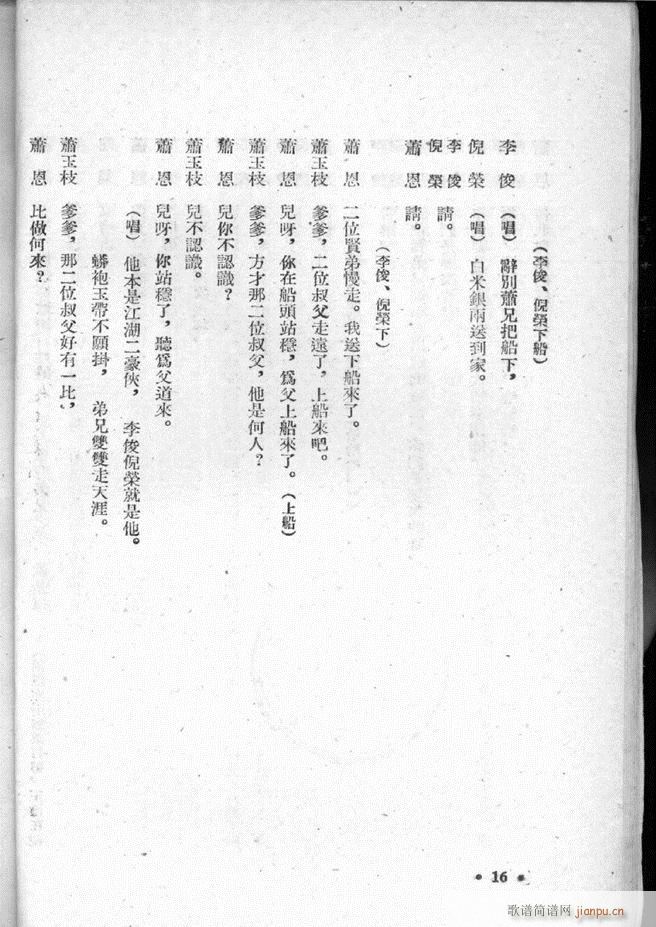 （李俊、倪榮下船）
李 俊 （唱）辭別蕭兄把船下，
倪 榮 （唱）白米銀兩送到家。
李 俊
倪 榮 請。
蕭 恩 請。
（李俊、倪榮下）
蕭 恩 二位賢弟慢走。我送下船來了。
蕭玉枝 爹爹，二位叔父走遠了，上船來吧。
蕭 恩 兒呀，你在船頭站穩，爲父上船來了。（上船）
蕭玉枝 爹爹，方才那二位叔父，他是何人？
蕭 恩 兒你不認識？
蕭玉枝 兒不認識。
蕭 恩 兒呀，你站穩了，聽爲父道來。
（唱）他本是江湖二豪俠，李俊倪榮就是他。
蟒袍玉帶不願掛，弟兄雙雙走天涯。
蕭玉枝 爹爹，那二位叔父好有一比，
蕭 恩 比做何來？
• 16 •
歌谱简谱网 jianpu.cn